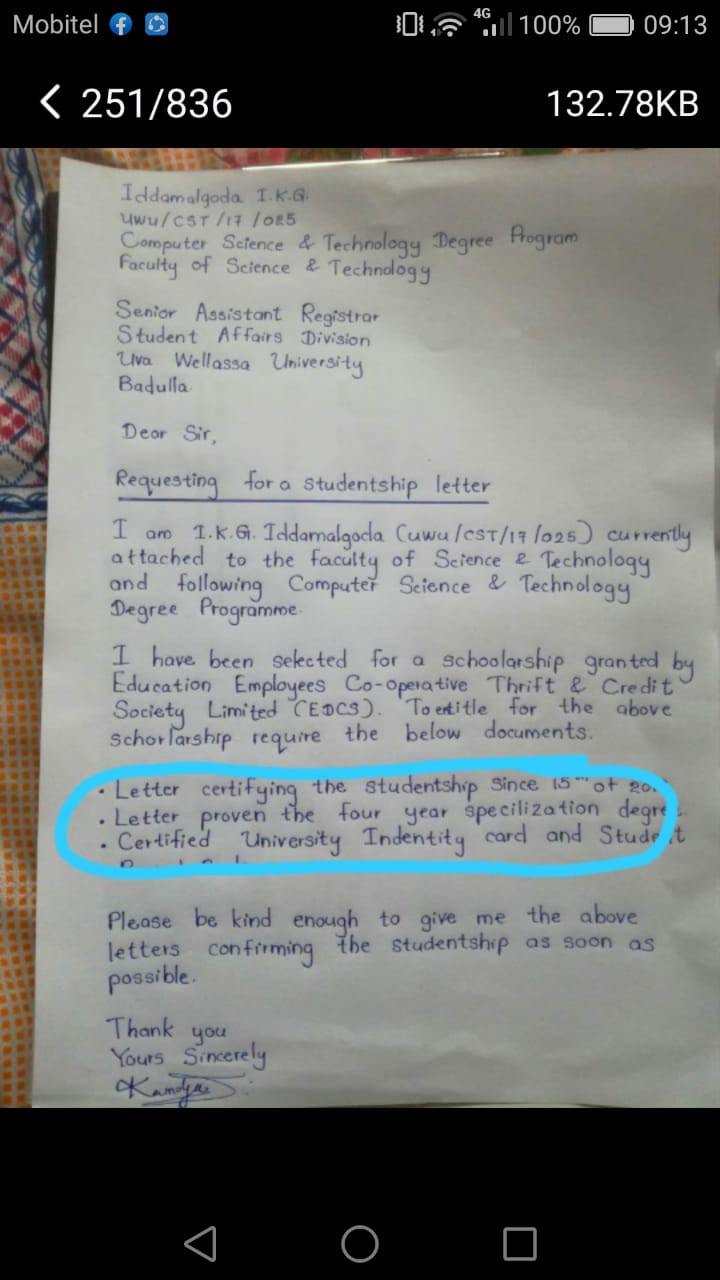 Mobitel 4G 100% 09:13
251/836 132.78KB
Iddamalgoda I.K.G.
UWU/CST/17/025
Computer Science & Technology Degree Program
Faculty of Science & Technology
Senior Assistant Registrar
Student Affairs Division
Uva Wellassa University
Badulla.
Dear Sir,
Requesting for a studentship letter
I am I.K.G. Iddamalgoda (UWU/CST/17/025) currently
attached to the faculty of Science & Technology
and following Computer Science & Technology
Degree Programme.
I have been selected for a schoolarship granted by
Education Employees Co-operative Thrift & Credit
Society Limited (EDCS). To entitle for the above
schorlarship require the below documents.
• Letter certifying the studentship since 15th of
• Letter proven the four year specilization
• Certified University Indentity card and Student
Please be kind enough to give me the above
letters confirming the studentship as soon as
possible.
Thank you
Yours Sincerely